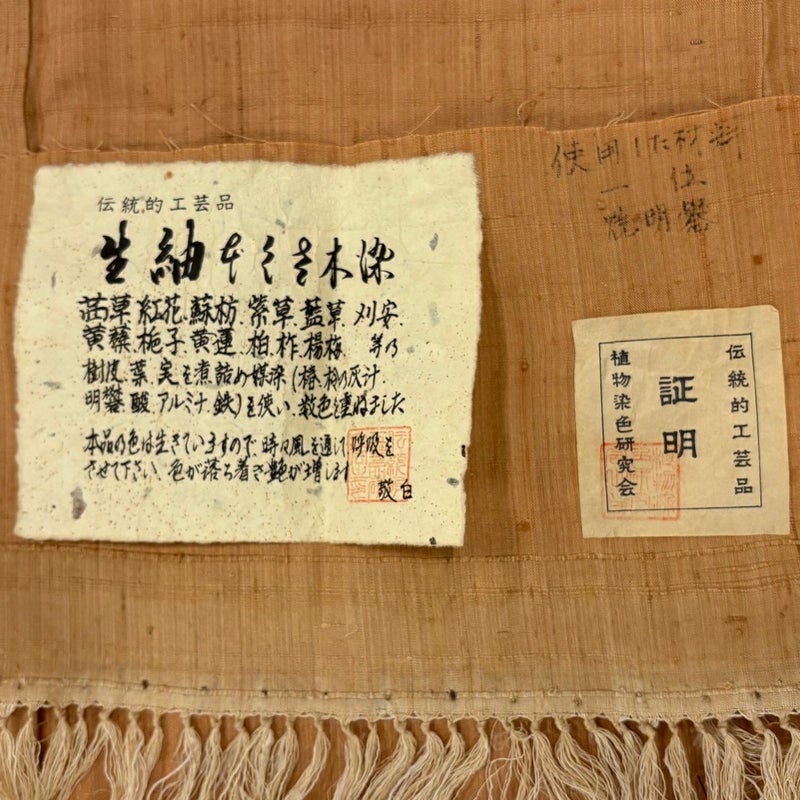 伝統的工芸品
生紬本くさ木染
茜草.紅花.蘇枋.紫草.藍草.刈安.
黄蘗.梔子.黄蓮.柏.柞.楊梅. 等の
樹皮.葉.実を煮詰め媒染(椿.柃の灰汁
明礬.酸.アルミナ.鉄)を使い、数色を重ねました
本品の色は生きていますので、時々風を通して呼吸を
させて下さい、色が落ち着き艶が増します
敬白
使用した材料
一位
焼明礬
伝統的工芸品
証明
植物染色研究会